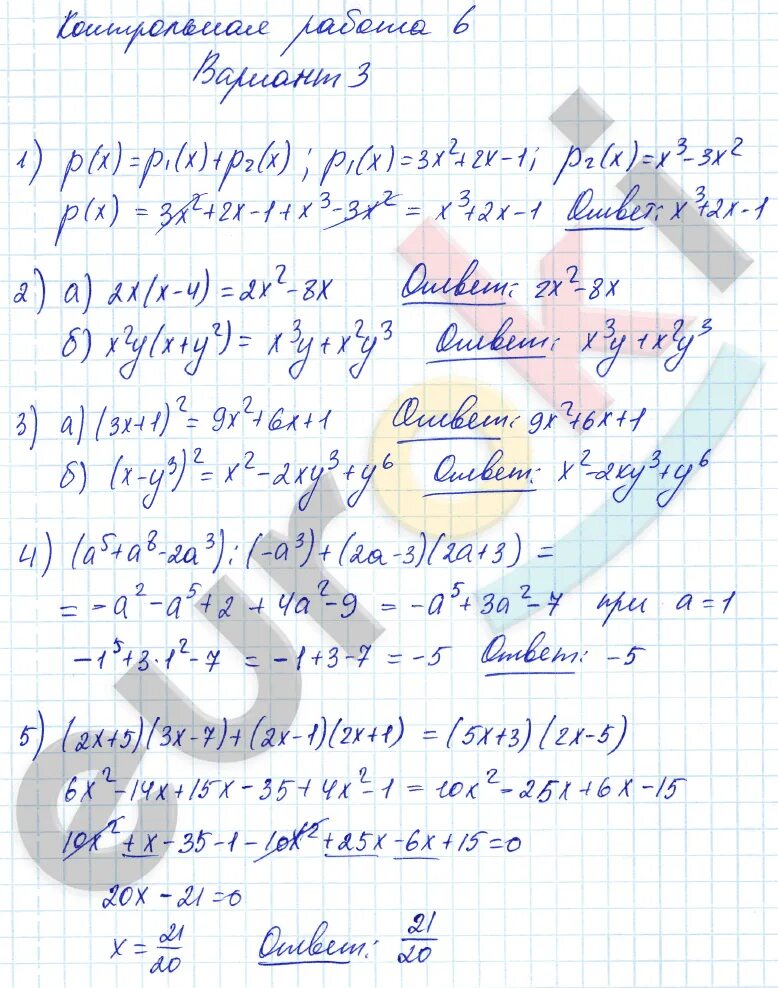 Контрольная работа 6
Вариант 3
1) p(x) = p₁(x) + p₂(x) ; p₁(x) = 3x² + 2x - 1 ; p₂(x) = x³ - 3x²
p(x) = 3x² + 2x - 1 + x³ - 3x² = x³ + 2x - 1 Ответ: x³ + 2x - 1
2) а) 2x(x - 4) = 2x² - 8x Ответ: 2x² - 8x
б) x²y(x + y²) = x³y + x²y³ Ответ: x³y + x²y³
3) а) (3x + 1)² = 9x² + 6x + 1 Ответ: 9x² + 6x + 1
б) (x - y³)² = x² - 2xy³ + y⁶ Ответ: x² - 2xy³ + y⁶
4) (a⁵ + a⁸ - 2a³) : (-a³) + (2a - 3)(2a + 3) =
= -a² - a⁵ + 2 + 4a² - 9 = -a⁵ + 3a² - 7 при a = 1
-1⁵ + 3·1² - 7 = -1 + 3 - 7 = -5 Ответ: -5
5) (2x + 5)(3x - 7) + (2x - 1)(2x + 1) = (5x + 3)(2x - 5)
6x² - 14x + 15x - 35 + 4x² - 1 = 10x² - 25x + 6x - 15
10x² + x - 35 - 1 - 10x² + 25x - 6x + 15 = 0
20x - 21 = 0
x = 21/20 Ответ: 21/20
euroki